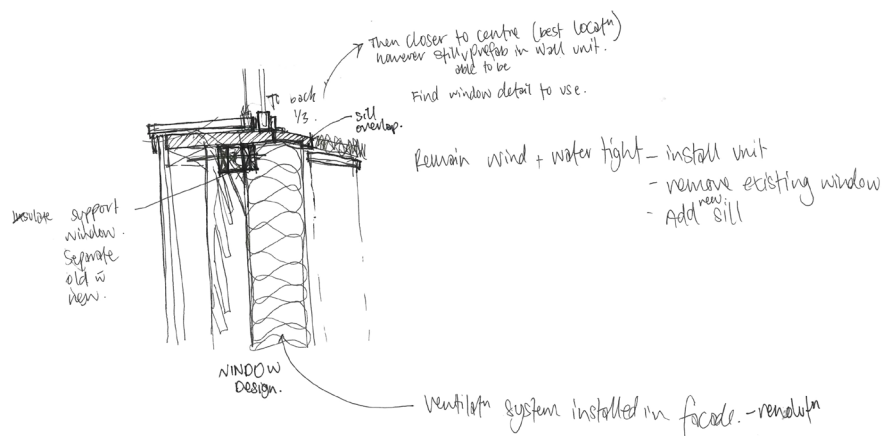 Then closer to centre (best locatn)
however still prefab in wall unit.
able to be
Find window detail to use.
To back
1/3.
sill
overlap.
Remain wind + water tight - install unit
- remove existing window
- Add new sill
Insulate support
window.
Separate
old
new.
WINDOW
Design.
Ventilatn system installed in facade. -